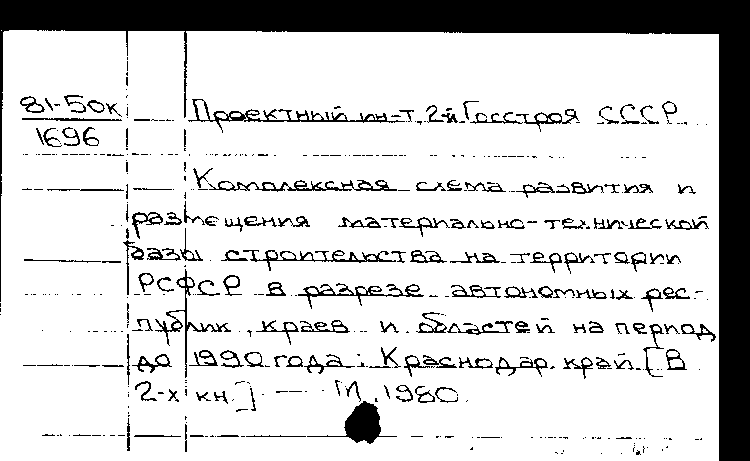 81-50к
1696
Проектный ин-т, 2-й Госстроя СССР
Комплексная схема развития и
размещения материально-технической
базы строительства на территории
РСФСР в разрезе автономных рес-
публик, краев и областей на период
до 1990 года: Краснодар. край. [В
2-х кн.] — М., 1980.